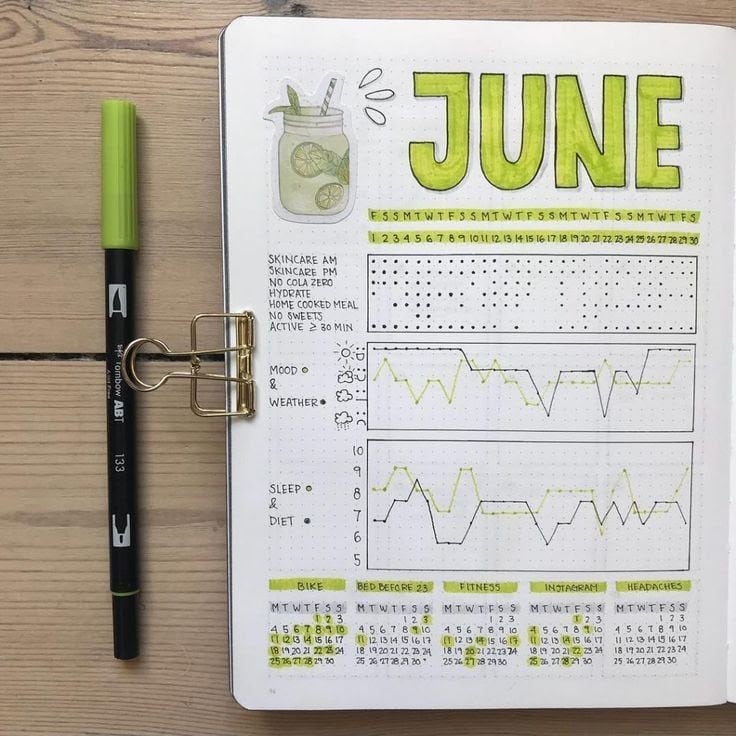 JUNE
F S S M T W T F S S M T W T F S S M T W T F S S M T W T F S
1 2 3 4 5 6 7 8 9 10 11 12 13 14 15 16 17 18 19 20 21 22 23 24 25 26 27 28 29 30
SKINCARE AM
SKINCARE PM
NO COLA ZERO
HYDRATE
HOME COOKED MEAL
NO SWEETS
ACTIVE ≥ 30 MIN
MOOD
&
WEATHER
10
9
8
7
6
5
SLEEP
&
DIET
BIKE BED BEFORE 23 FITNESS INSTAGRAM HEADACHES
M T W T F S S M T W T F S S M T W T F S S M T W T F S S M T W T F S S
1 2 3 1 2 3 1 2 3 1 2 3 1 2 3
4 5 6 7 8 9 10 4 5 6 7 8 9 10 4 5 6 7 8 9 10 4 5 6 7 8 9 10 4 5 6 7 8 9 10
11 12 13 14 15 16 17 11 12 13 14 15 16 17 11 12 13 14 15 16 17 11 12 13 14 15 16 17 11 12 13 14 15 16 17
18 19 20 21 22 23 24 18 19 20 21 22 23 24 18 19 20 21 22 23 24 18 19 20 21 22 23 24 18 19 20 21 22 23 24
25 26 27 28 29 30 25 26 27 28 29 30 25 26 27 28 29 30 25 26 27 28 29 30 25 26 27 28 29 30
Tombow ABT
133